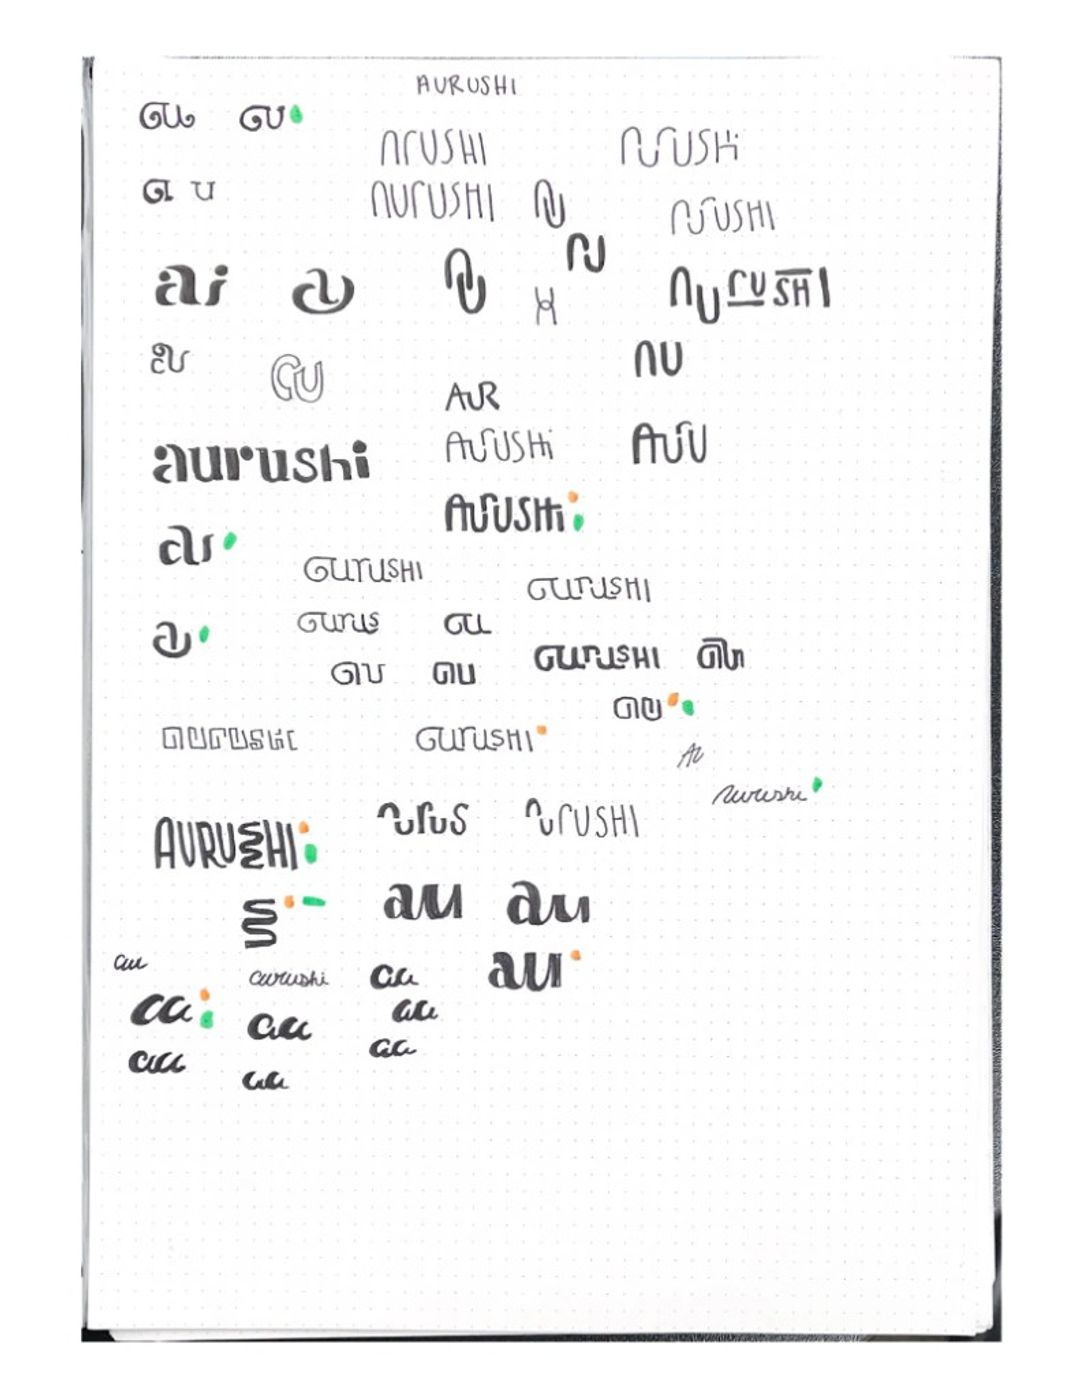 AURUSHI
au au
ARUSHI AURUSHI
a u
AURUSHI AU AURUSHI
AU
ai au AU AURUSHI
au au AU
AUR
aurushi AURUSHi AUU
AURUSHi
au
aURUSHI aURUSHI
aurus au
au
au au aURUSHI
au
aurushi aURUSHI
au
aurushi
AURUSHI aurus aURUSHI
S au au
au aurushi au au
au au au
au au au